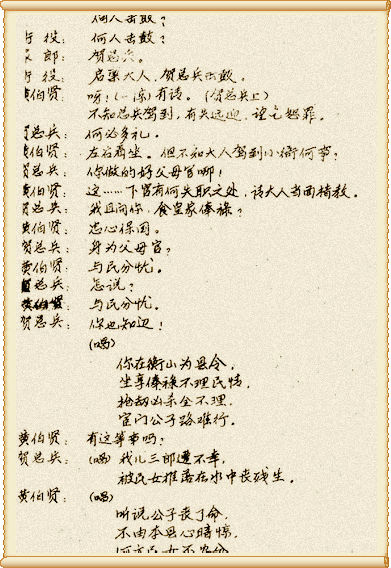 何人击鼓？
行 役： 何人击鼓？
郎： 贺总兵。
行 役： 启禀大人，贺总兵击鼓。
黄伯贤： 呀！(一惊)有请。(贺总兵上)
不知总兵驾到，有失远迎，望乞恕罪。
贺总兵： 何必多礼。
黄伯贤： 左右看坐。但不知大人驾到小衙何事？
贺总兵： 你做的好父母官哪！
黄伯贤： 这……下官有何失职之处，请大人当面指教。
贺总兵： 我且问你，食皇家俸禄？
黄伯贤： 忠心保国。
贺总兵： 身为父母官？
黄伯贤： 与民分忧。
贺总兵： 怎说？
黄伯贤： 与民分忧。
贺总兵： 你也知迟！
(唱)
你在衡山为县令，
坐享俸禄不理民情，
抢劫凶杀全不理，
官门公子路难行。
黄伯贤： 有这等事吗？
贺总兵： (唱) 我儿三郎遭不幸，
被民女推落在水中丧残生。
黄伯贤： (唱)
听说公子丧了命，
不由本县心暗惊，